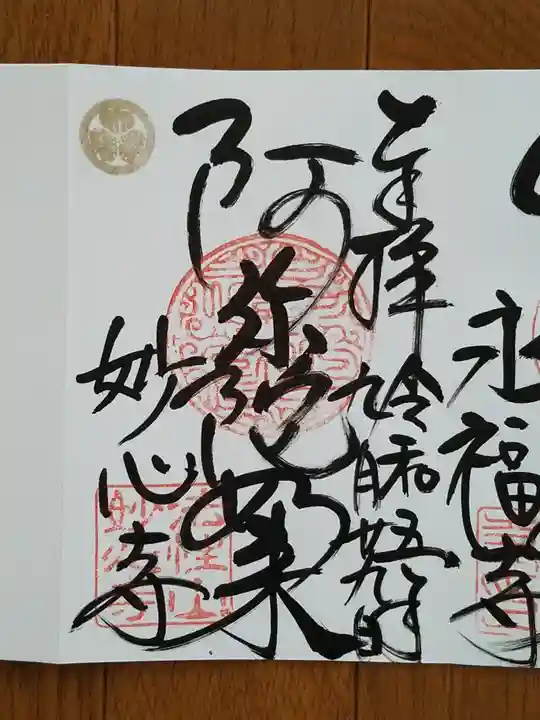 永福寺
奉拝
令和五年
九月廿九日
阿弥陀如来
妙心寺